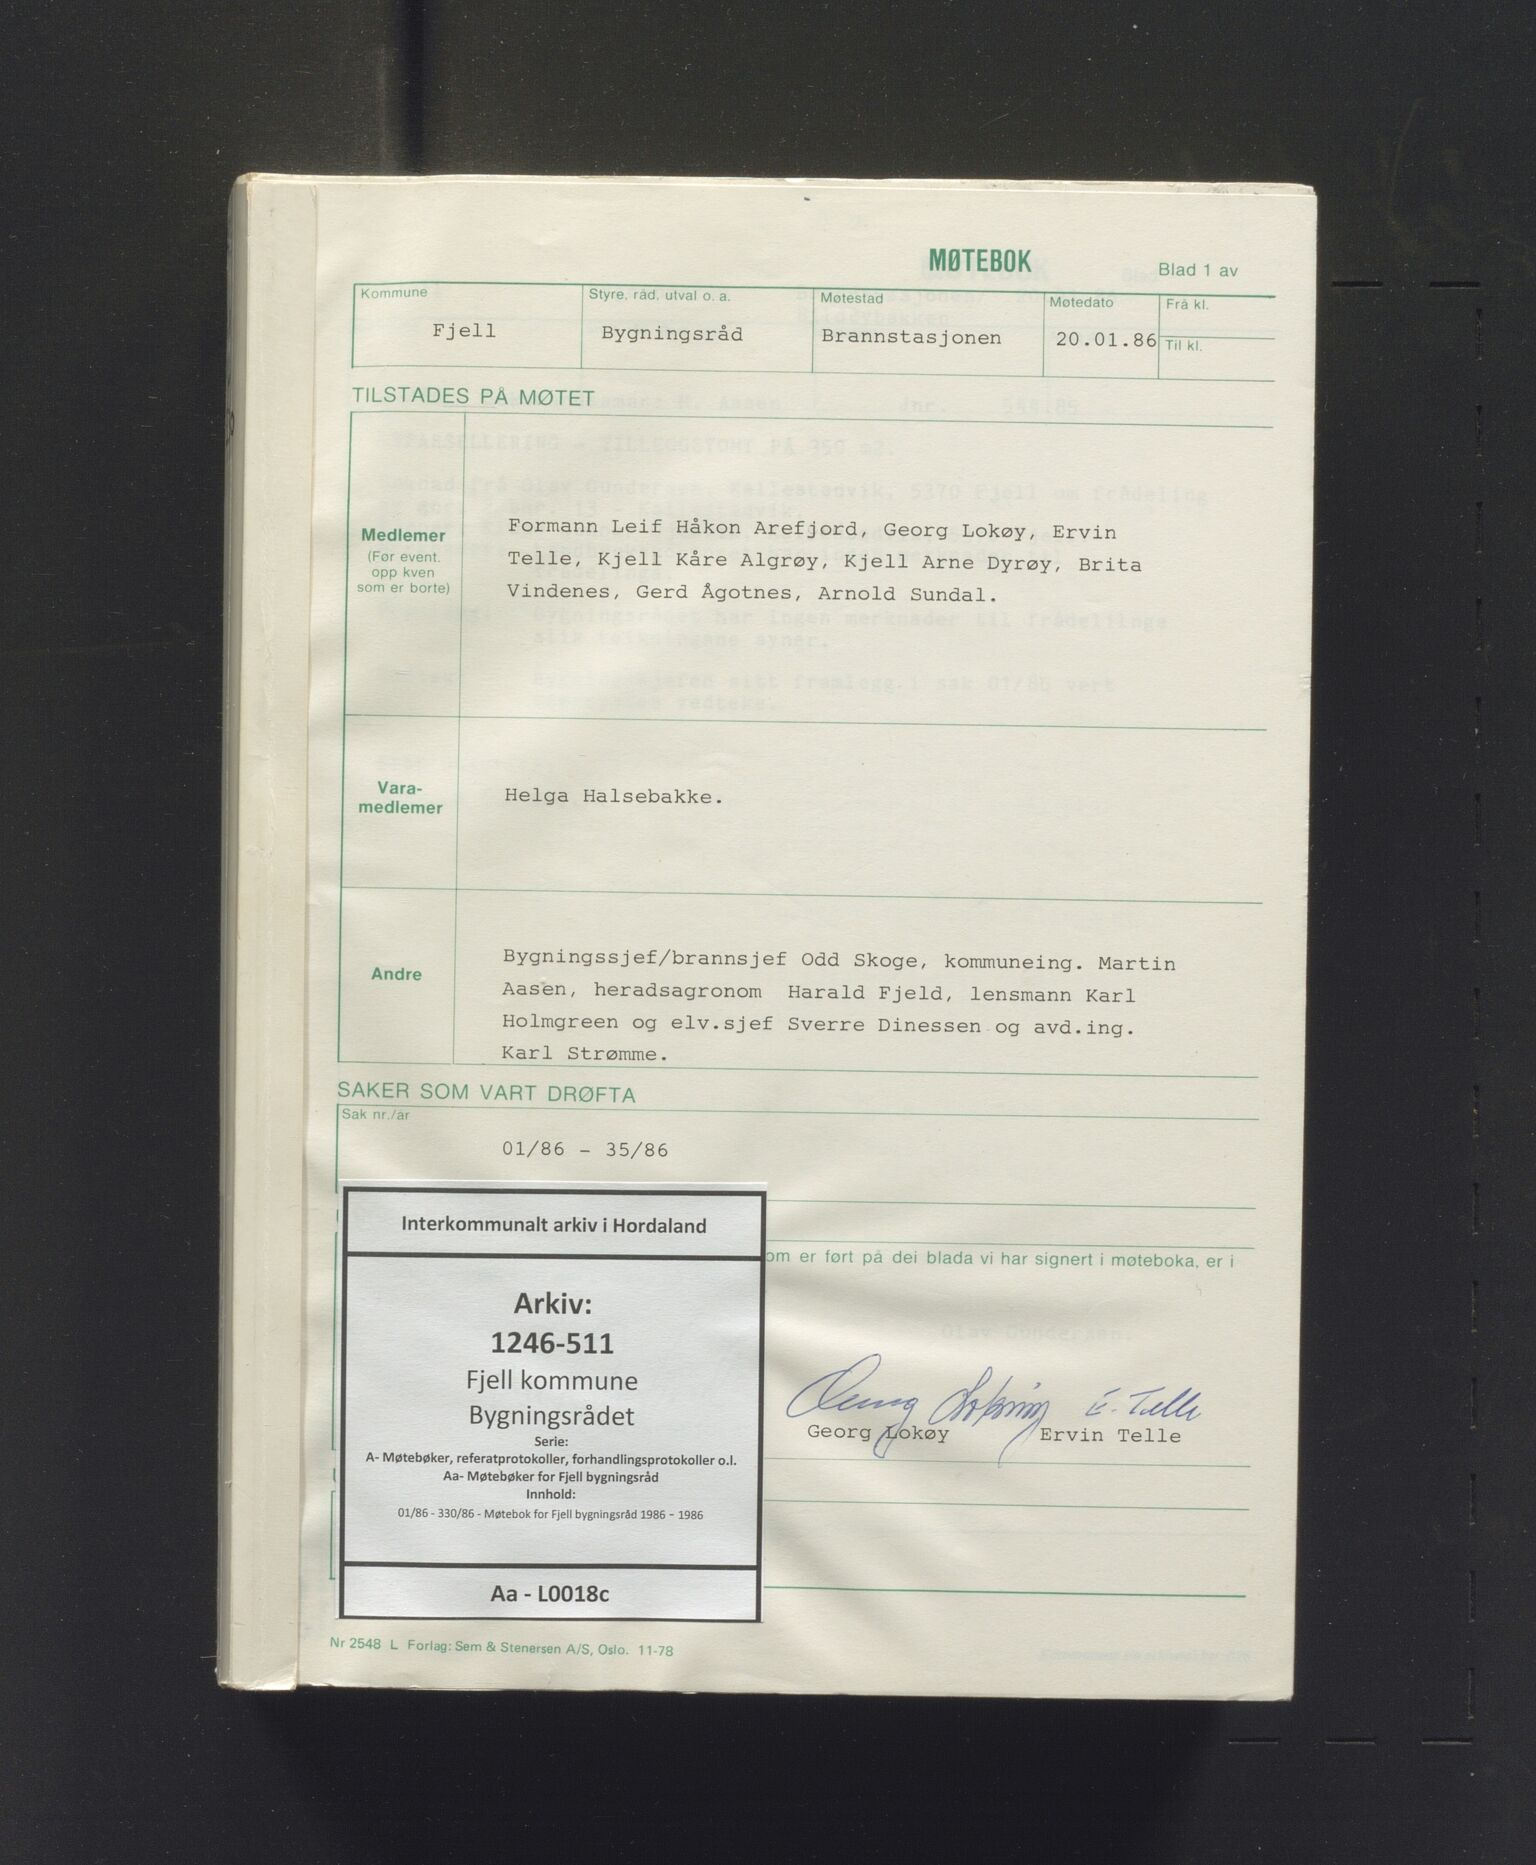 MØTEBOK
Blad 1 av
Kommune
Fjell
Styre, råd, utval o. a.
Bygningsråd
Møtestad
Brannstasjonen
Møtedato
20.01.86
Frå kl.
Til kl.
TILSTADES PÅ MØTET
Medlemer
(Før event.
opp kven
som er borte)
Formann Leif Håkon Arefjord, Georg Lokøy, Ervin
Telle, Kjell Kåre Algrøy, Kjell Arne Dyrøy, Brita
Vindenes, Gerd Ågotnes, Arnold Sundal.
Vara-
medlemer
Helga Halsebakke.
Andre
Bygningssjef/brannsjef Odd Skoge, kommuneing. Martin
Aasen, heradsagronom Harald Fjeld, lensmann Karl
Holmgreen og elv.sjef Sverre Dinessen og avd.ing.
Karl Strømme.
SAKER SOM VART DRØFTA
Sak nr./år
01/86 - 35/86
om er ført på dei blada vi har signert i møteboka, er i
Georg Lokøy E. Telle
Georg Lokøy
Ervin Telle
Interkommunalt arkiv i Hordaland
Arkiv:
1246-511
Fjell kommune
Bygningsrådet
Serie:
A- Møtebøker, referatprotokoller, forhandlingsprotokoller o.l.
Aa- Møtebøker for Fjell bygningsråd
Innhold:
01/86 - 330/86 - Møtebok for Fjell bygningsråd 1986 - 1986
Aa - L0018c
Nr 2548 L Forlag: Sem & Stenersen A/S, Oslo. 11-78